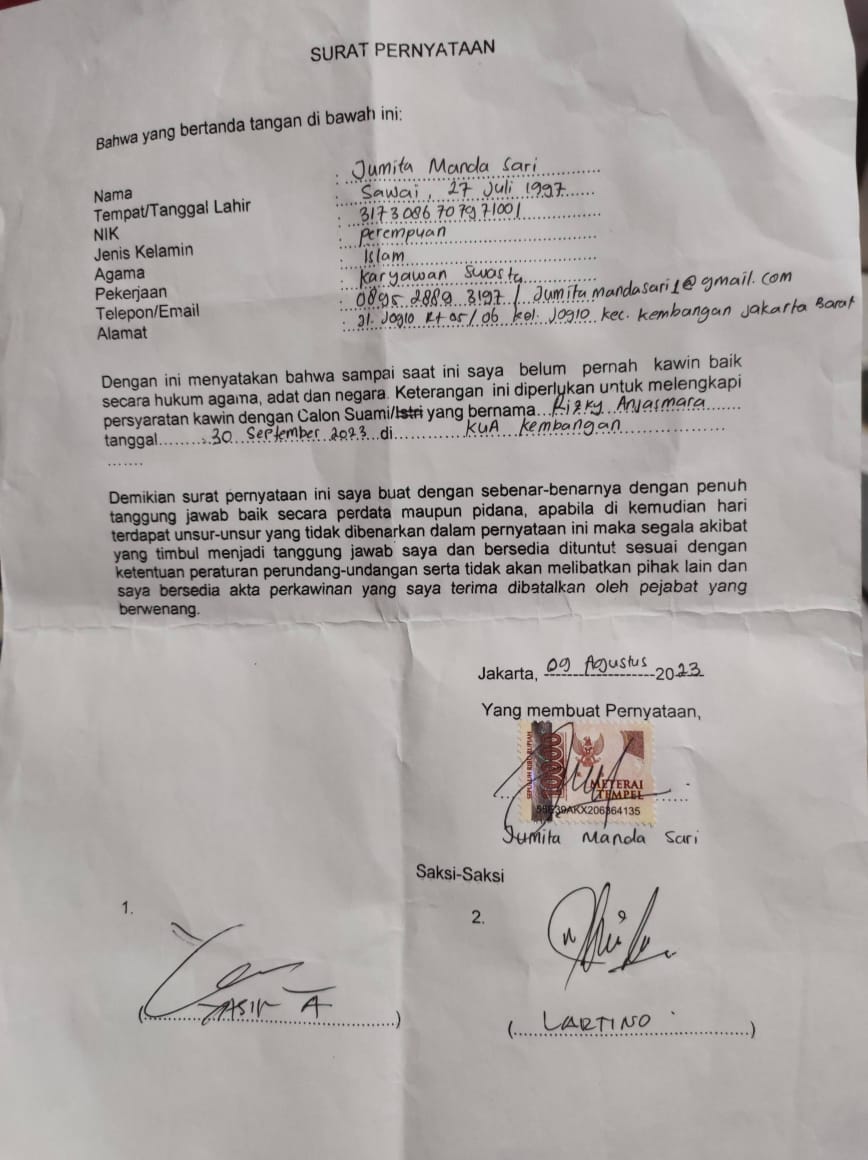 SURAT PERNYATAAN
Bahwa yang bertanda tangan di bawah ini:
Nama : Jumita Manda Sari
Tempat/Tanggal Lahir : Sawai, 27 Juli 1997
NIK : 3173086707971001
Jenis Kelamin : Perempuan
Agama : Islam
Pekerjaan : Karyawan Swasta
Telepon/Email : 0895 2889 3197 / Jumitamandasari1@gmail.com
Alamat : Jl. Joglo Rt 05/06 Kel. Joglo Kec. Kembangan Jakarta Barat
Dengan ini menyatakan bahwa sampai saat ini saya belum pernah kawin baik
secara hukum agama, adat dan negara. Keterangan ini diperlukan untuk melengkapi
persyaratan kawin dengan Calon Suami/Istri yang bernama...Rizky Anjasmara
tanggal.........30 September 2023 di............KUA Kembangan
.......
Demikian surat pernyataan ini saya buat dengan sebenar-benarnya dengan penuh
tanggung jawab baik secara perdata maupun pidana, apabila di kemudian hari
terdapat unsur-unsur yang tidak dibenarkan dalam pernyataan ini maka segala akibat
yang timbul menjadi tanggung jawab saya dan bersedia dituntut sesuai dengan
ketentuan peraturan perundang-undangan serta tidak akan melibatkan pihak lain dan
saya bersedia akta perkawinan yang saya terima dibatalkan oleh pejabat yang
berwenang.
Jakarta, 09 Agustus 2023
Yang membuat Pernyataan,
SEPULUH RIBU RUPIAH
10000
METERAI
TEMPEL
39AKX206864135
Jumita Manda Sari
Saksi-Saksi
1.
2.
(YASIN A)
(LARTINO)